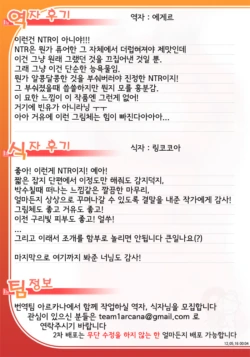 역자 후기
역자 : 에게르
이런건 NTR이 아니야!!!
NTR은 뭔가 좀이한 그 자체에서 더럽혀져야 제맛인데
이건 그냥 원래 그랬던 것을 끄집어낸 것일 뿐,
그래 그냥 이건 단순한 능욕물임.
뭔가 알콩달콩한 것을 부숴버려야 진정한 NTR이지!
그 부숴졌을때 씁쓸하지만 뭔지 모를 흥분감,
이 묘한 느낌이 이 작품엔 그런게 없어!
거기에 빈유가 아니라닝 ㅜㅜ
아아 거유에 이런 그림체는 힘이 빠진다아아아...
식자 후기
식자 : 링코코아
좋아! 이런게 NTR이지! 예아!
짧은 잡지 단편에서 이정도만 해줘도 감지덕지,
박수칠때 떠나는 느낌같은 깔끔한 마무리,
얼마든지 상상으로 꾸며나갈 수 있도록 결말을 내준 작가에게 감사!
그림체도 좋고 거유도 좋고!
이런 구리빛 피부도 좋고! 얼쑤!
...
그리고 이래서 조개를 함부로 놀리면 안됩니다 큰일나요(?)
마지막으로 여기까지 봐준 너님도 감사!
팀 정보
번역팀 아르카나에서 함께 작업하실 역자, 식자님을 모집합니다
관심이 있으신 분들은 team1arcana@gmail.com 로
연락주시기 바랍니다
2차 배포는 무단 수정을 하지 않는 한 얼마든지 배포 가능합니다